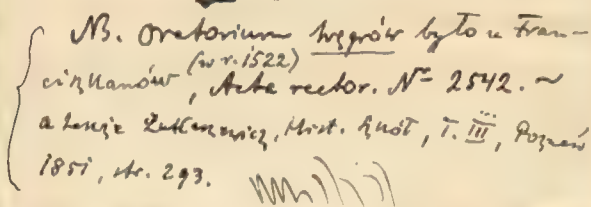 NB. Oratorium Węgrów było u Fran-
ciszkanów (w r. 1522), Acta rector. № 2542. ~
Łukaszewicz, Hist. szkół, T. III, Poznań
1851, str. 293.